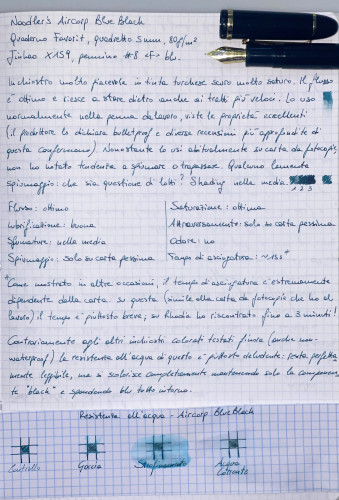 Noodler's Aircorp Blue Black
Quaderno Favorit, quadretto 5mm, 80g/m²
Jinhao X159, pennino #8 <F> blu.
Inchiostro molto piacevole in tinta turchese scuro molto saturo. Il flusso
è ottimo e riesce a stare dietro anche ai tratti più veloci. Lo uso
normalmente nella penna da lavoro, viste le proprietà eccellenti
(il produttore lo dichiara bulletproof e diverse recensioni più approfondite di
questa confermano). Nonostante lo usi abitualmente su carta da fotocopie,
non ho notato tendenze a spiumare o trapassare. Qualcuno lamenta
spiumaggio: che sia questione di lotti? Shading nella media.
1 2 3
Flusso: ottimo
Lubrificazione: buona
Sfumature: nella media
Spiumaggio: solo su carta pessima
Saturazione: ottima
Attraversamento: solo su carta pessima
Odore: no
Tempo di asciugatura: ~15s*
*Come mostrato in altre occasioni, il tempo di asciugatura è estremamente
dipendente dalla carta: su questa (simile alla carta da fotocopie che ho al
lavoro) il tempo è piuttosto breve; su Rhodia ho riscontrato fino a 3 minuti!
Contrariamente agli altri inchiostri colorati testati finora (anche non-
waterproof) la resistenza all'acqua di questo è piuttosto deludente: resta perfetta
mente leggibile, ma si scolorisce completamente mantenendo solo la componen
te "black" e spandendo blu tutto intorno.
Resistenza all'acqua - Aircorp Blue Black
Controllo
Goccia
Strofinamento
Acqua
Corrente